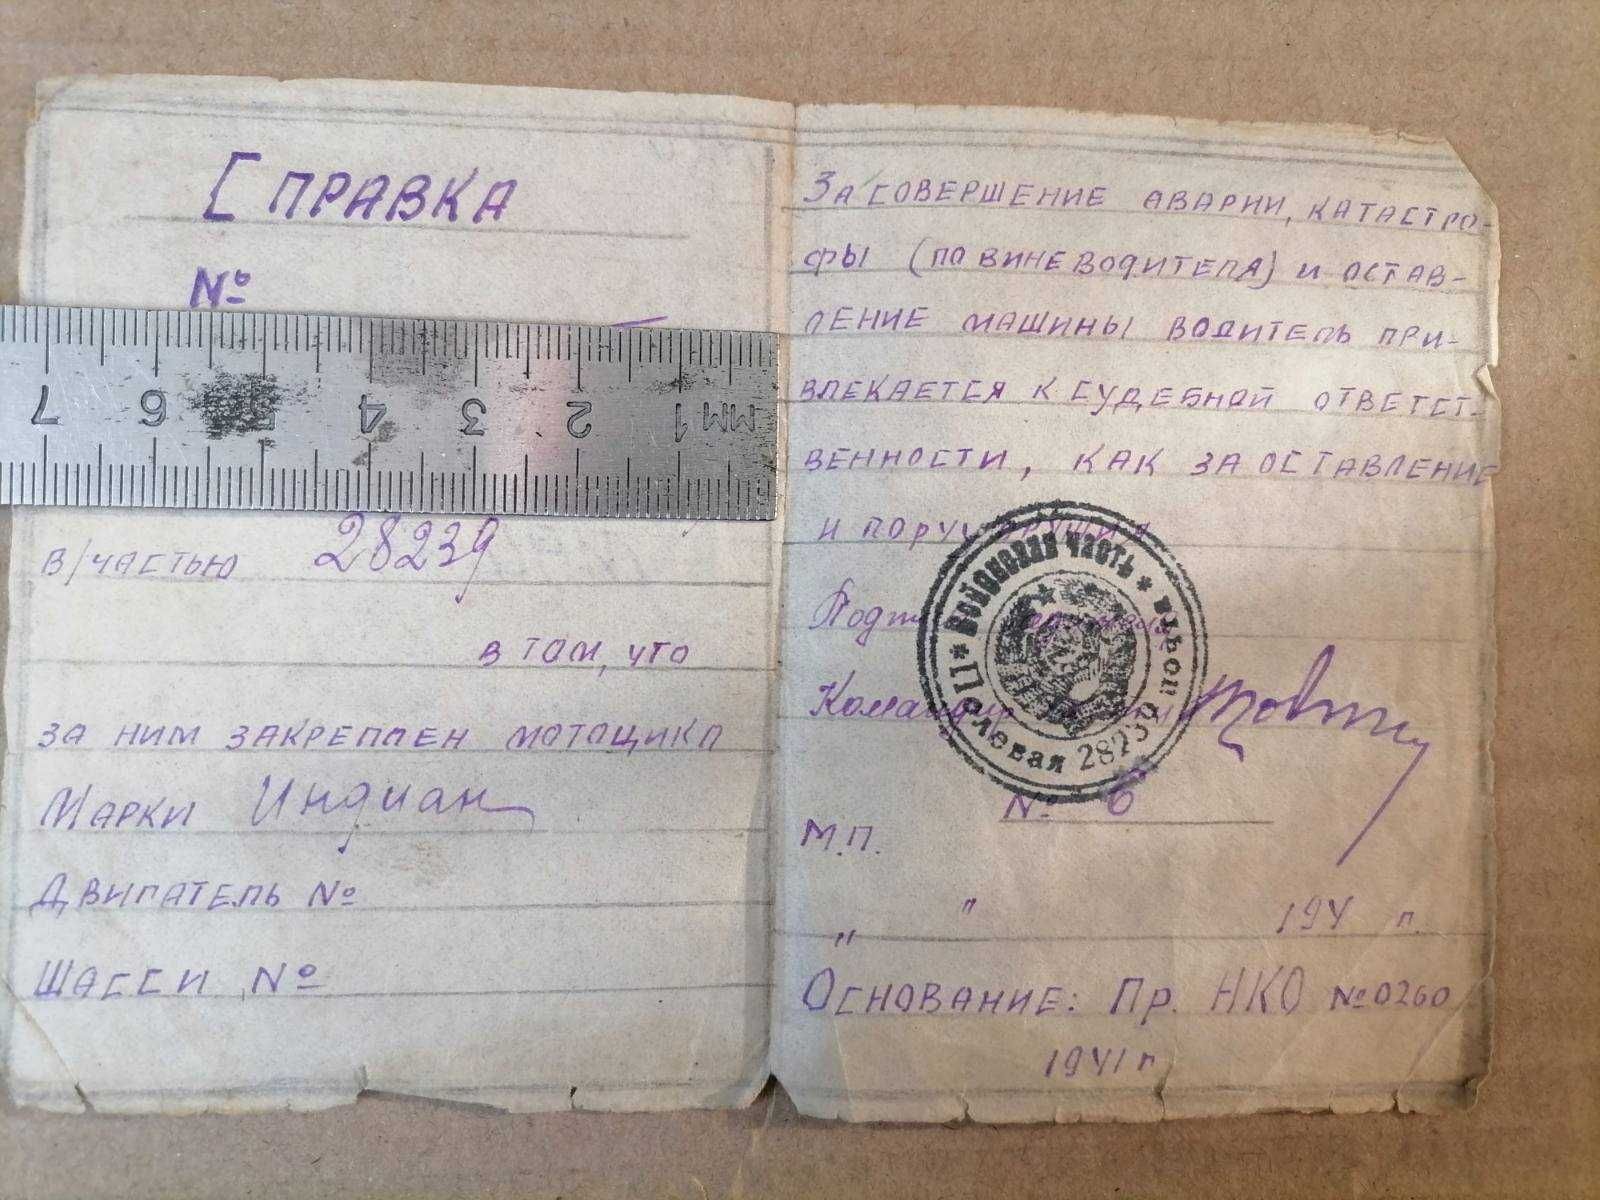 Справка
№
7 6 5 4 3 2 1 мм
в/частью 28239
в том, что
за ним закреплен мотоцикл
Марки Индиан
Двигатель №
Шасси №
За совершение аварии, катастро-
фы (по вине водителя) и остав-
ление машины водитель при-
влекается к судебной ответст-
венности, как за оставление
и
Командир
Войсковая часть
Полевая почта
28239
№ 6
М.П.
„ " 194 г.
Основание: Пр. НКО №0260
1941 г